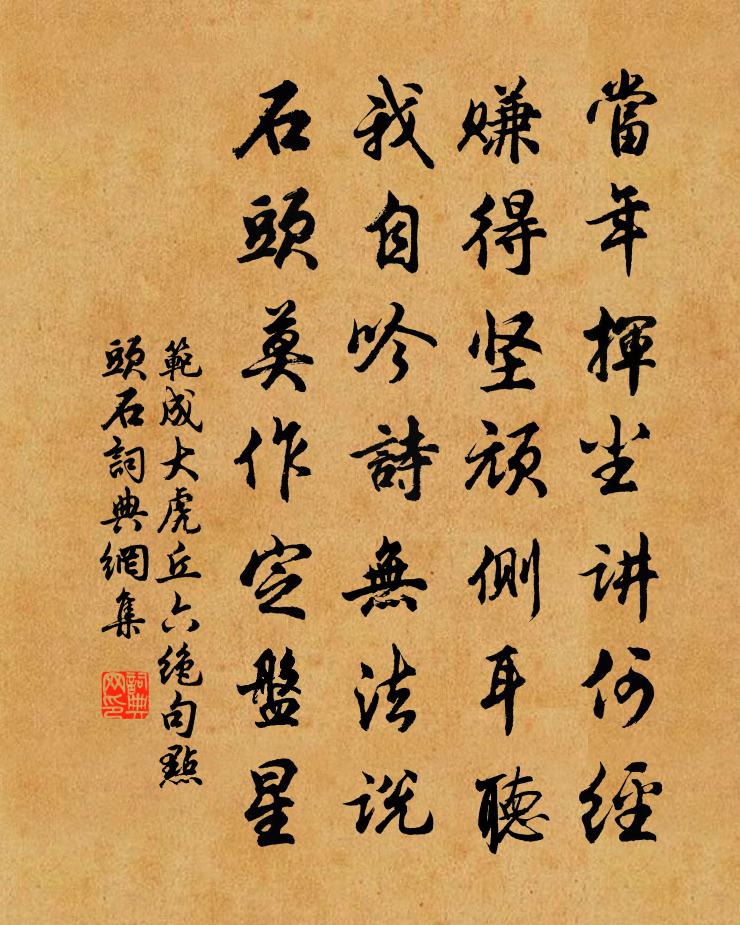 當年揮尘讲何經
賺得坚顽側耳聽
我自吟詩無法説
石頭莫作定盤星
範成大虎丘六絶句點
頭石詞典網集
詞典网印